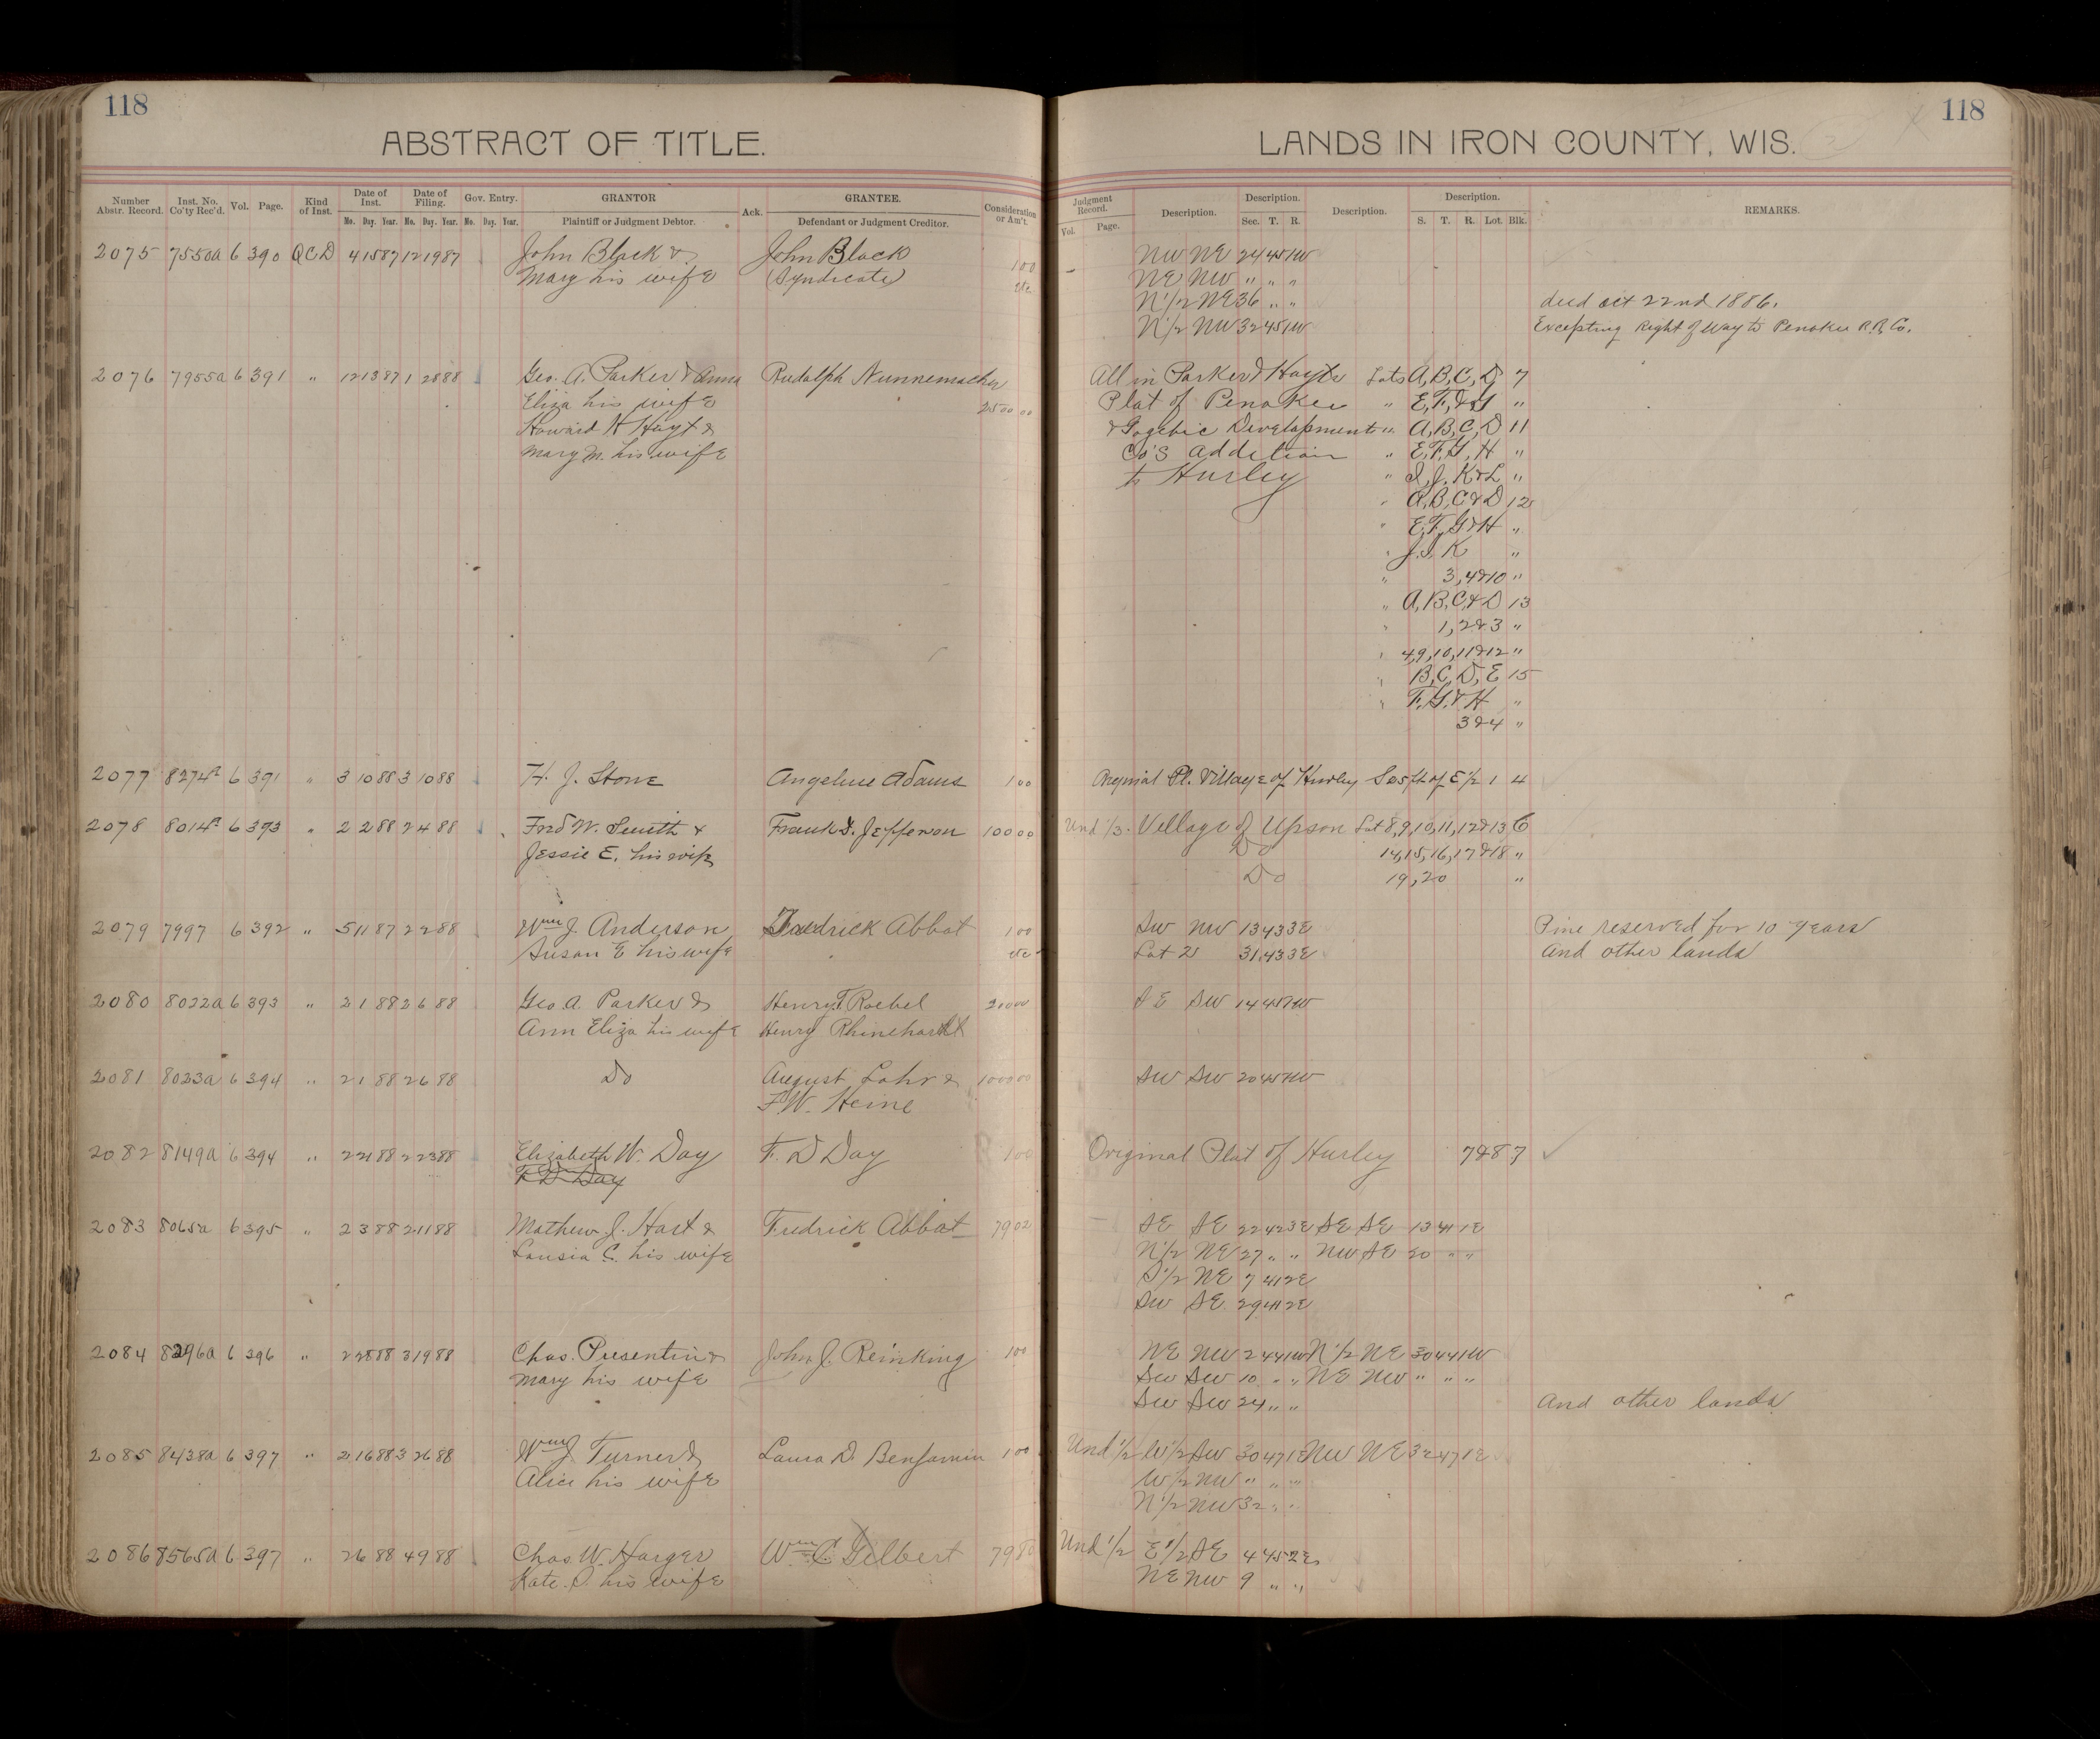 118
118
ABSTRACT OF TITLE.
LANDS IN IRON COUNTY, WIS.
Number Abstr. Record. Inst. No. Co'ty Rec'd. Vol. Page. Kind of Inst. Date of Inst. Date of Filing. Gov. Entry. GRANTOR Ack. GRANTEE. Consideration or Am't.
Mo. Day. Year. Mo. Day. Year. Mo. Day. Year. Plaintiff or Judgment Debtor. Defendant or Judgment Creditor.
Judgment Record. Description. Description. Description. Description. REMARKS.
Vol. Page. Sec. T. R. S. T. R. Lot. Blk.
2075 7550a 6 390 QCD 4 15 87 12 19 87 John Black & John Black 100 NW NE 24 45 1W
Mary his wife (Syndicate) etc NE NW " " "
N 1/2 NE 36 " " deed oct 22nd 1886.
N 1/2 NW 32 45 1W Excepting Right of Way to Penokee R.R. Co.
2076 7955a 6 391 " 12 13 87 1 28 88 Geo. A. Parker & Anna Rudolph Nunnemacher All in Parker & Hayts Lots A, B, C, D 7
Eliza his wife 2500 00 Plat of Penokee " E, F, & G "
Howard H Hayt & & Gogebic Development " A, B, C, D 11
Mary M. his wife Co's addition " E, F, G, H "
to Hurley " I, J, K & L "
" A, B, C & D 12
" E, F, G & H "
" J. I. K "
" 3, 4 & 10 "
" A, B, C & D 13
" 1, 2 & 3 "
" 4, 9, 10, 11 & 12 "
" B, C, D, E 15
" F, G, & H "
3 & 4 "
2077 8274a 6 391 " 3 10 88 3 10 88 H. J. Stone Angeline Adams 1 00 Original Pl. Village of Hurley S 25 ft of E 1/2 1 4
2078 8014a 6 393 " 2 2 88 2 4 88 Fred W. Smith & Frank I. Jefferson 100 00 Und 1/3. Village of Upson Lot 8, 9, 10, 11, 12 & 13 6
Jessie E. his wife Do 14, 15, 16, 17 & 18 "
Do 19, 20 "
2079 7997 6 392 " 5 11 87 2 2 88 Wm J. Anderson Fredrick Abbot 1 00 SW NW 13 43 3E Pine reserved for 10 years
Susan E his wife etc Lot 2 31 43 3E And other lands
2080 8022a 6 393 " 2 1 88 2 6 88 Geo. A. Parker & Henry F. Roebel 200 00 SE SW 14 45 1W
Ann Eliza his wife Henry Rhinehardt
2081 8023a 6 394 " 2 1 88 2 6 88 Do August Lohr & 1000 00 SW SW 20 45 1W
F. W. Heine
2082 8149a 6 394 " 2 21 88 2 23 88 Elizabeth W. Day F. D Day 1 00 Original Plat of Hurley 7 & 8 7
F D Day
2083 8065a 6 395 " 2 3 88 2 11 88 Mathew J. Hart & Fredrick Abbot 79 02 SE SE 22 42 3E SE SE 13 41 1E
Lousia C. his wife N 1/2 NE 27 " " NW SE 20 " "
S 1/2 NE 7 41 2E
SW SE 29 41 2E
2084 8296a 6 396 " 2 28 88 3 19 88 Chas. Pusentin & John J. Reinking 1 00 NE NW 2 44 1W N 1/2 NE 30 44 1W
Mary his wife SW SW 10 " " NE NW " " "
SW SW 24 " " And other lands
2085 8438a 6 397 " 2 16 88 3 26 88 Wm J. Turner & Laura D. Benjamin 1 00 Und 1/2 W 1/2 SW 30 47 1E NW NE 32 47 1E
Alice his wife W 1/2 NW " " "
N 1/2 NW 32 " "
2086 8565a 6 397 " 2 6 88 4 9 88 Chas. W. Harger Wm C. Gilbert 79 Und 1/2 E 1/2 SE 4 45 2E
Kate. S. his wife NE NW 9 " "